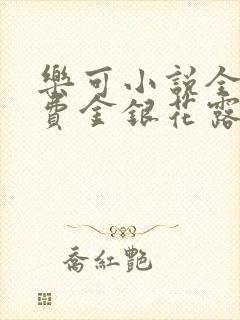 樂可小說全
費金銀花露
喬紅艷